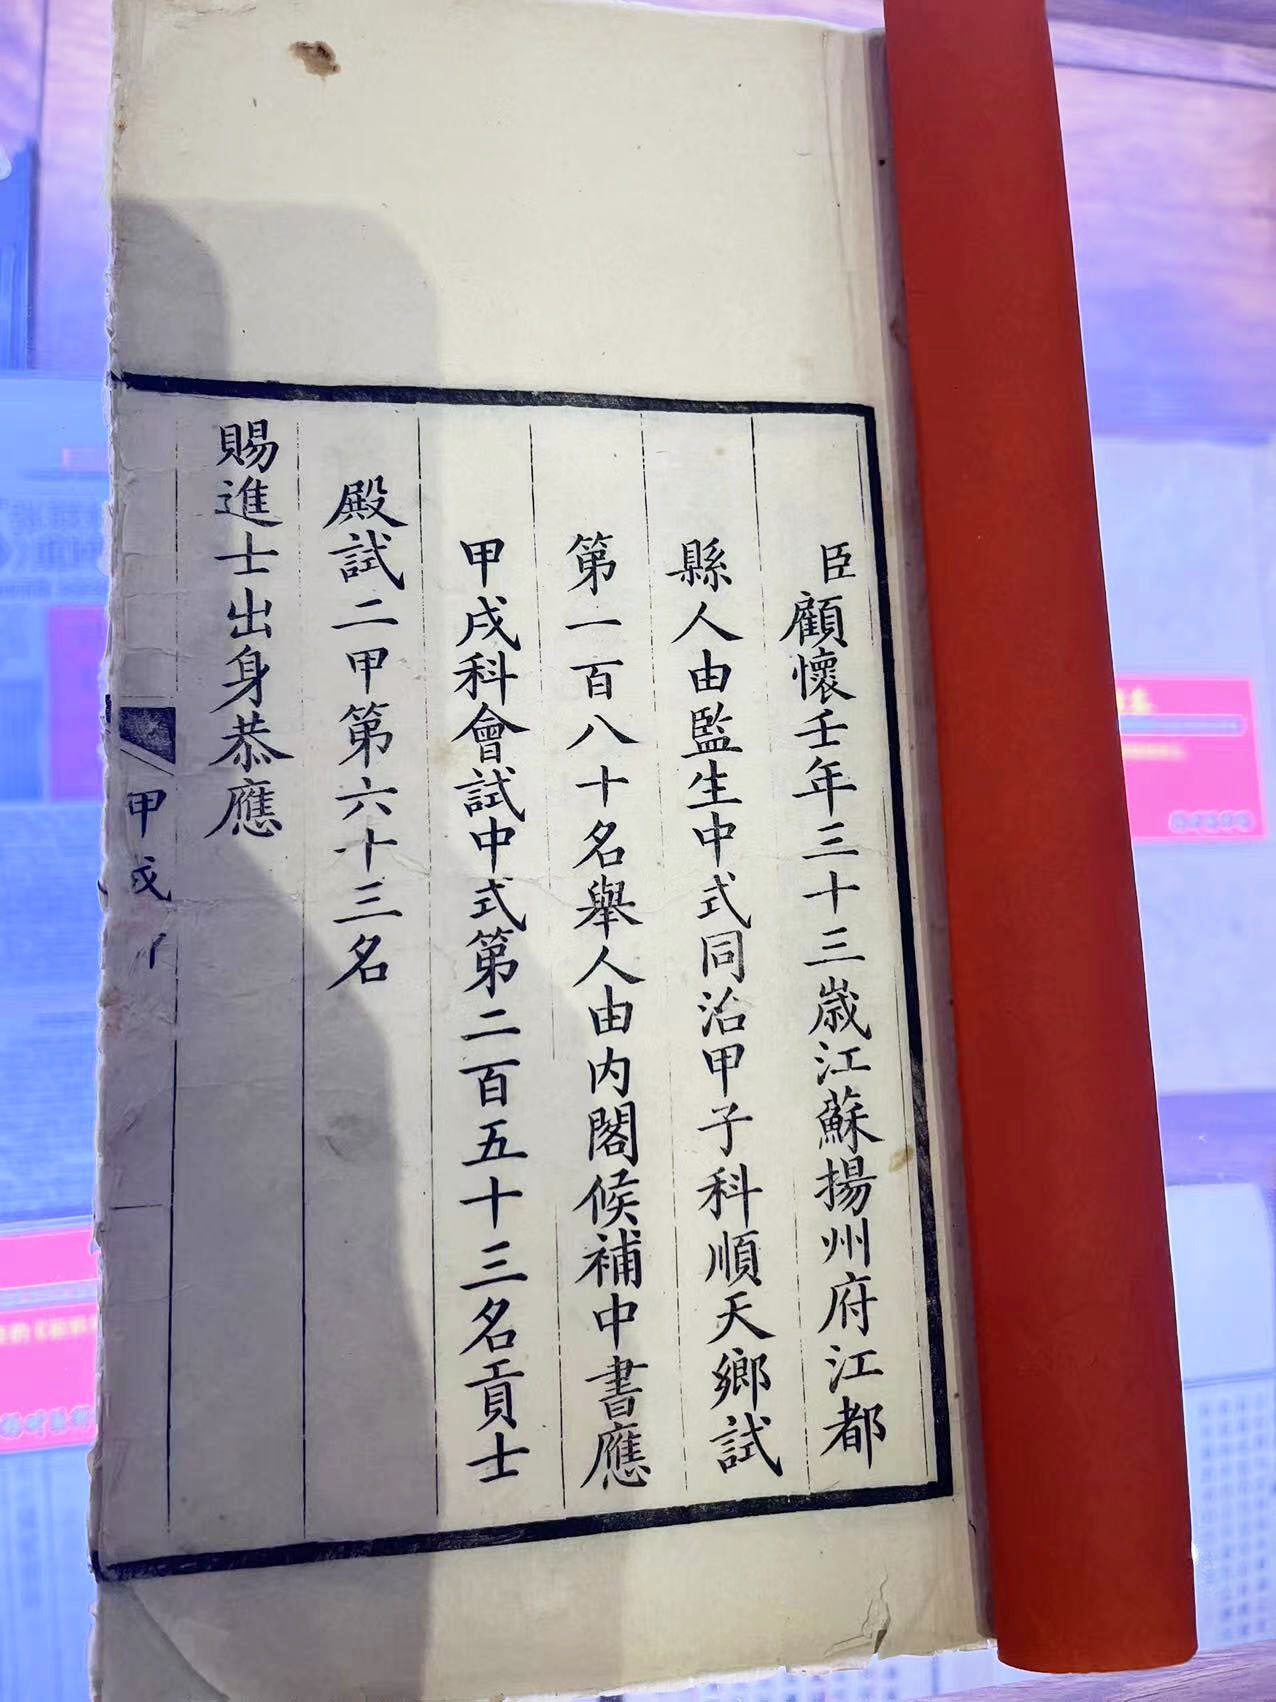 臣顧懷壬年三十三嵗江蘇揚州府江都
縣人由監生中式同治甲子科順天鄉試
第一百八十名舉人由内閣候補中書應
甲戌科會試中式第二百五十三名貢士
殿試二甲第六十三名
賜進士出身恭應
甲戌